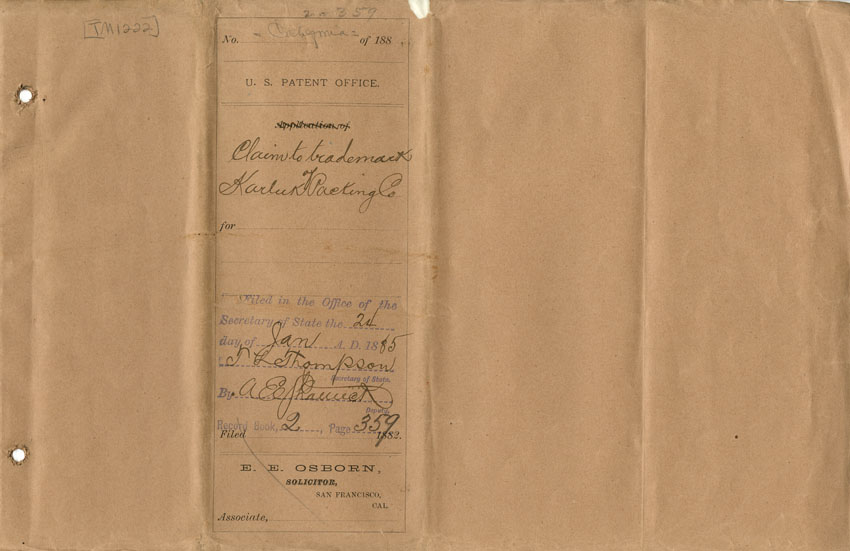 [TM1222]
2 a 359
No. of 188 ,
U. S. PATENT OFFICE.
Application of
Claim to trademark
of
Karluk Packing Co
for
Filed in the Office of the
Secretary of State the 24
day of Jan A. D. 1885
T L Thompson
Secretary of State.
By A E Shattuck
Deputy.
Record Book, 2 , Page 359
Filed 1882.
E. E. OSBORN,
SOLICITOR,
SAN FRANCISCO,
CAL.
Associate,